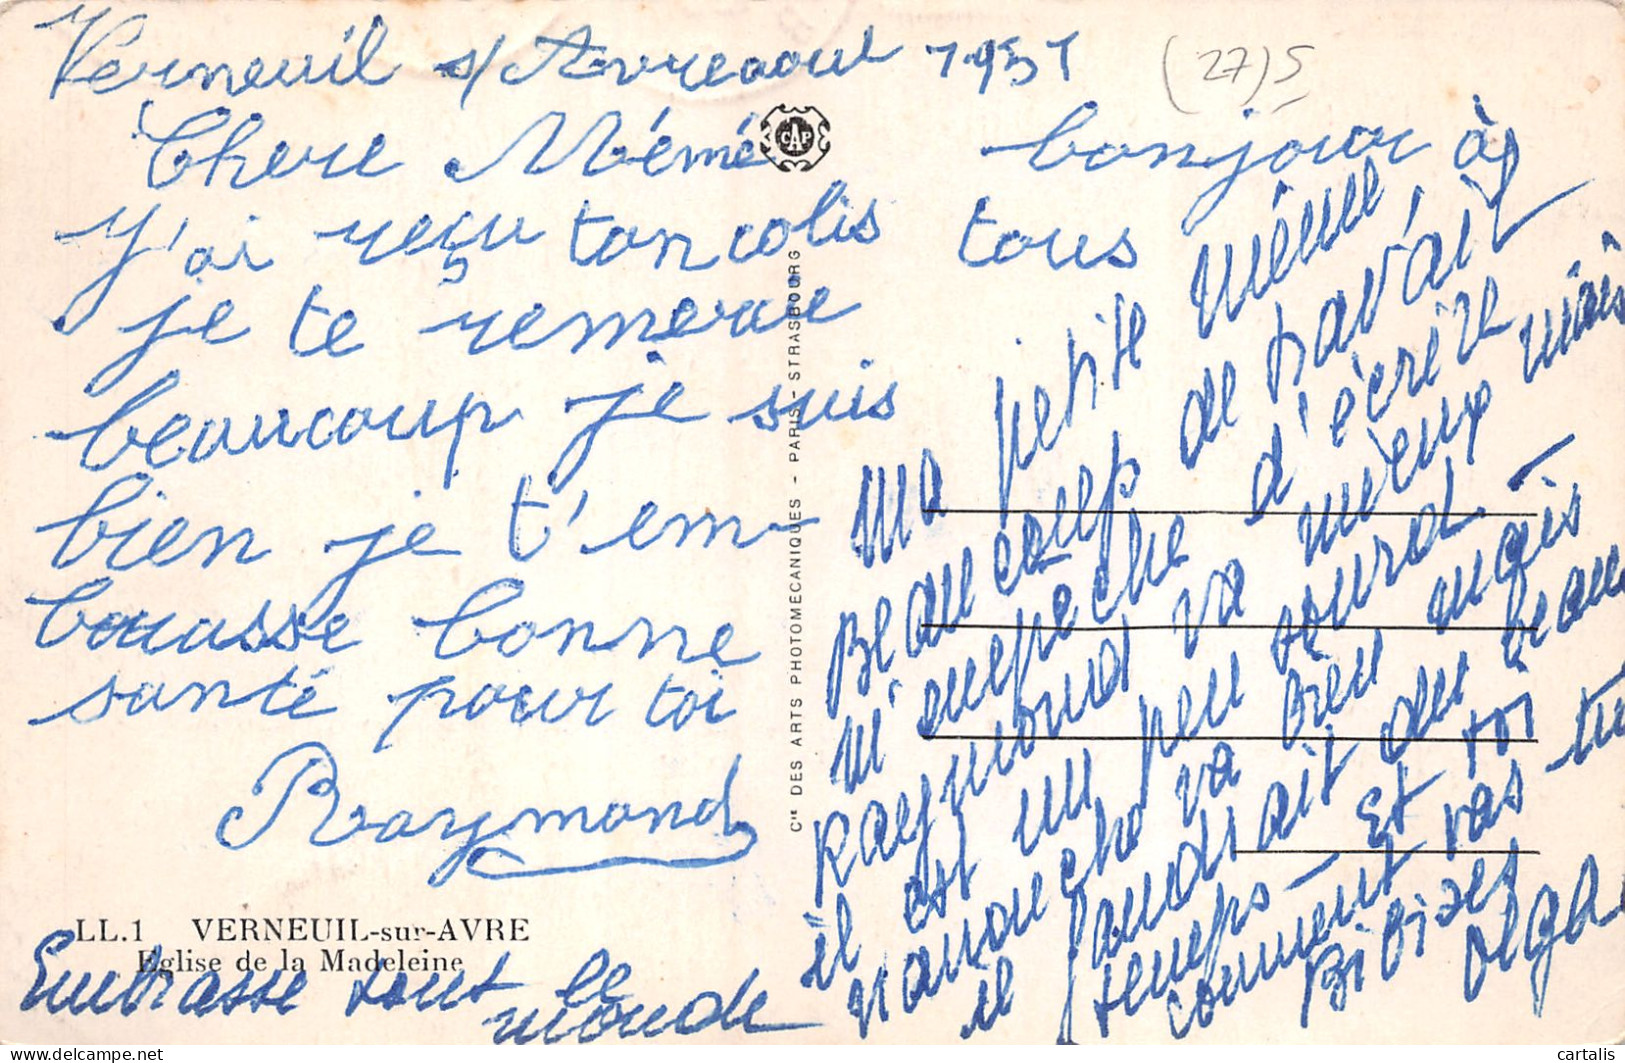 Verneuil s/ Avre aout 1951
(27) 5
Chere Mémé
J'ai reçu ton colis
je te remercie
beaucoup je suis
bien je t'em-
brasse bonne
santé pour toi
Raymond
LL.1 VERNEUIL-sur-AVRE
Eglise de la Madeleine
Embrasse tout le
monde
CAP
Cie DES ARTS PHOTOMECANIQUES - PARIS - STRASBOURG
bonjour à
tous
Ma petite Mémé
Beaucoup de travail
m'empeche d'écrire
Raymond va mieux mais
il est un peu sourd -
va bien mais
il faudrait du beau
temps - Et toi
comment vas-tu
Bibises
Olga
cartalis